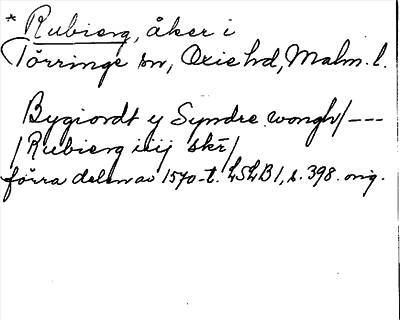 * Rubierg, åker i
Törringe sn, Oxie hd, Malm. l.
Bygiordt y Syndre wongh/---
/Rubierg iiij skr/
förra delen av 1570-t. LSLB 1, s. 398. orig.